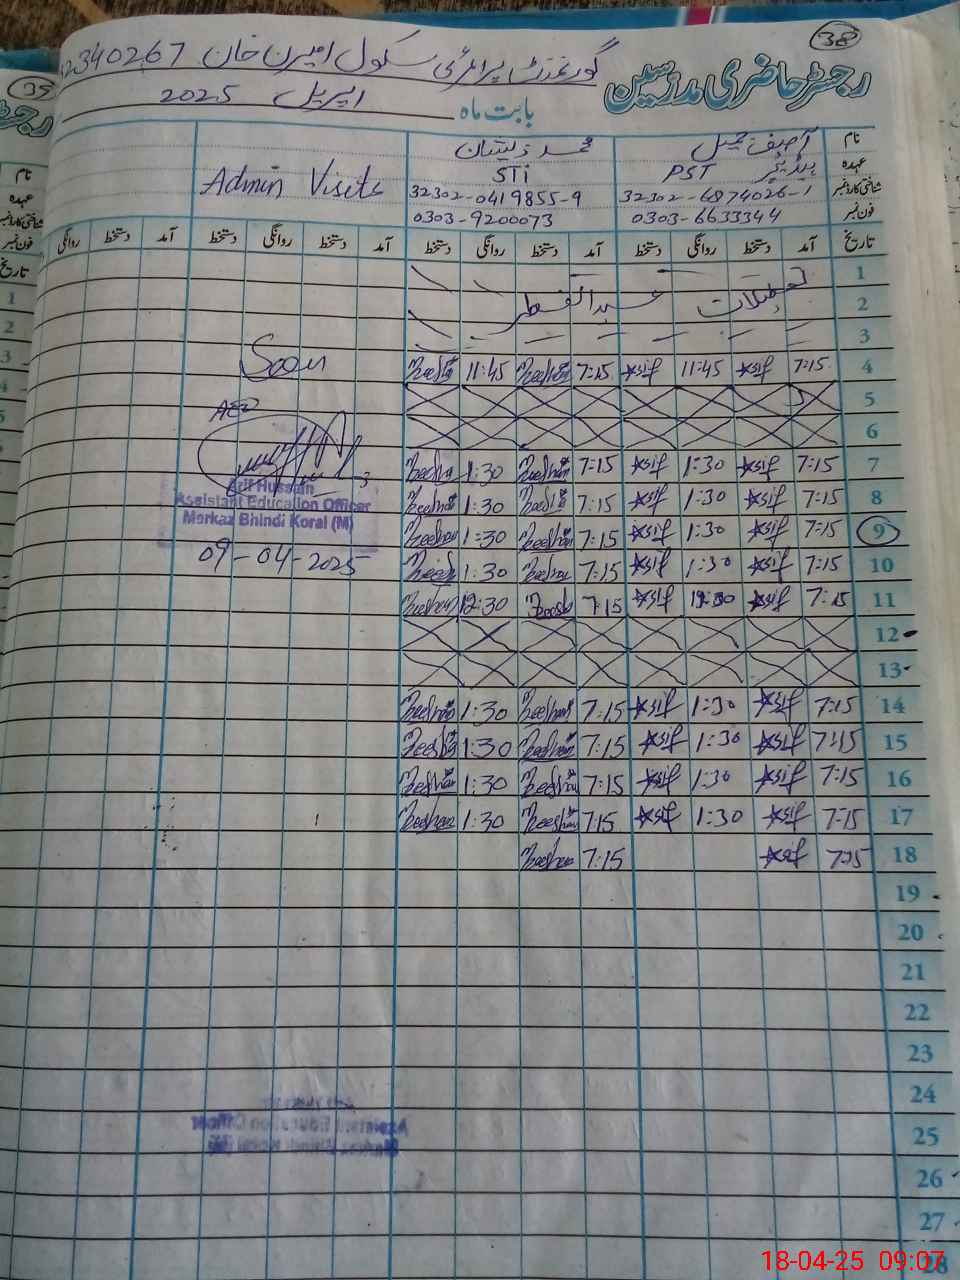 38
رجسٹر حاضری مدرسین
گورنمنٹ پرائمری سکول امیرن خان 32340267
بابت ماہ اپریل 2025
نام آصف جمیل محمد ذیشان
عہدہ ہیڈ ٹیچر PST STI Admin Visits
شناختی کارڈ نمبر 32302-6874026-1 32302-0419855-9
فون نمبر 0303-6633344 0303-9200073
تاریخ آمد دستخط روانگی دستخط آمد دستخط روانگی دستخط آمد دستخط روانگی دستخط آمد دستخط روانگی
1
2 تعطیلات عیدالفطر
3
4 7:15 Asif 11:45 Asif 7:15 Zeeshan 11:45 Zeeshan Seen
5
6 AEO
7 7:15 Asif 1:30 Asif 7:15 Zeeshan 1:30 Zeeshan
Arif Hussain
8 7:15 Asif 1:30 Asif 7:15 Zeeshan 1:30 Zeeshan
Assistant Education Officer
Markaz Bhindi Koral (M)
9 7:15 Asif 1:30 Asif 7:15 Zeeshan 1:30 Zeeshan
09-04-2025
10 7:15 Asif 1:30 Asif 7:15 Zeeshan 1:30 Zeeshan
11 7:15 Asif 12:30 Asif 7:15 Zeeshan 12:30 Zeeshan
12
13
14 7:15 Asif 1:30 Asif 7:15 Zeeshan 1:30 Zeeshan
15 7:15 Asif 1:30 Asif 7:15 Zeeshan 1:30 Zeeshan
16 7:15 Asif 1:30 Asif 7:15 Zeeshan 1:30 Zeeshan
17 7:15 Asif 1:30 Asif 7:15 Zeeshan 1:30 Zeeshan
18 7:15 Asif 7:15 Zeeshan
19
20
21
22
23
24
25
26
27
28
18-04-25 09:07